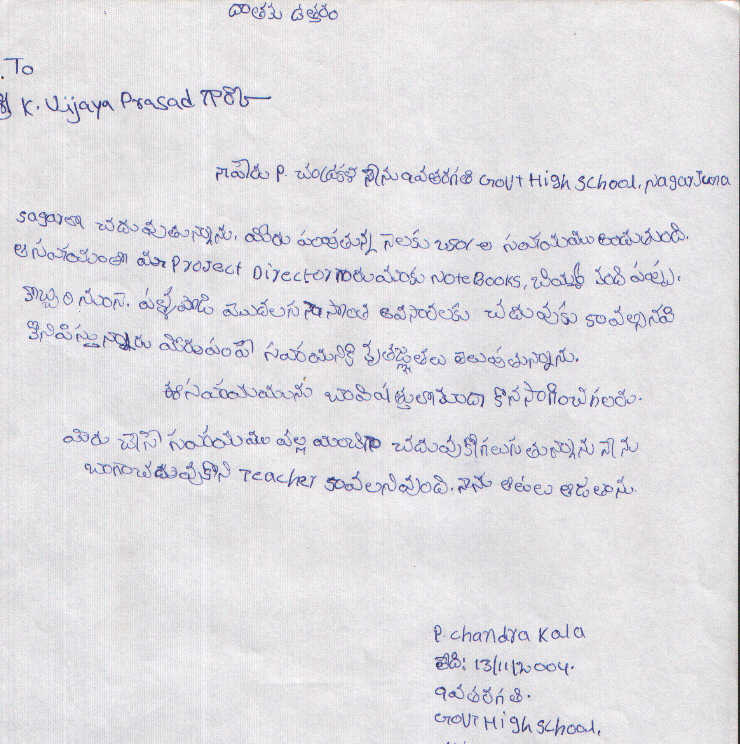 దాతకు ఉత్తరం
To
శ్రీ K. Vijaya Prasad గారికి
నాపేరు P. చంద్రకళ నేను 9వతరగతి GOVT High School, Nagarjuna
sagarలో చదువుతున్నాను. మీరు పంపుతున్న నెలకు సహాయము అందుతుంది.
ఆ సహాయంతో మా Project Director గారు మాకు Note Books, పంపు.
కొబ్బరి నూనె, పళ్ళపొడి మొదలగు నా సొంత అవసరాలకు చదువుకు కావల్సినవి
కొనిపిస్తున్నారు మీరు పంపే సహాయనికి కృతజ్ఞతలు తెలుపుతున్నాను.
ఈ సహాయమును కొనసాగించగలరు.
మీరు చేసే సహాయము వల్ల మంచిగా చదువుకోగలుగుతున్నాను నేను
బాగా చదువుకొని Teacher కావలనివుంది. నేను ఆటలు ఆడతాను.
P. Chandra Kala
తేది: 13/11/2004.
9వతరగతి.
GOVT High School,